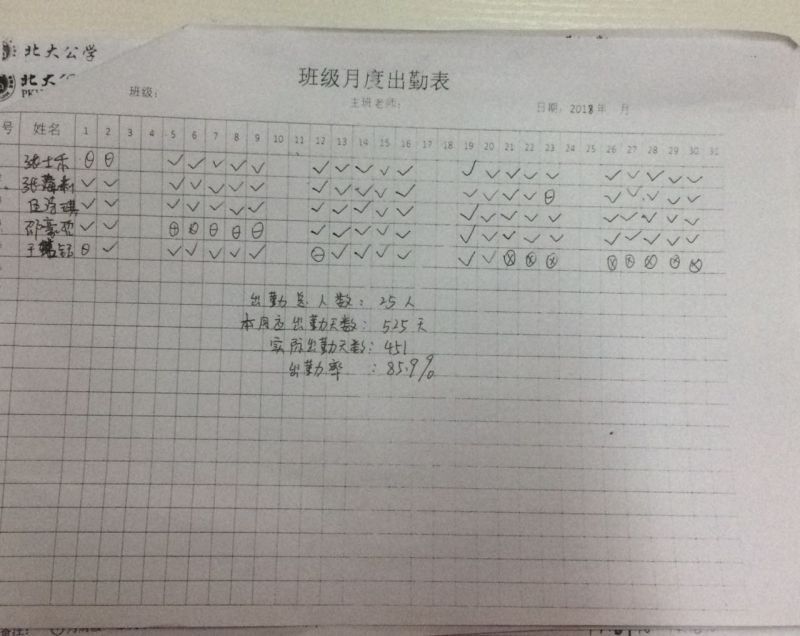 北大公学
北大
PKU
班级月度出勤表
班级： 主班老师： 日期：2018年 月
号 姓名 1 2 3 4 5 6 7 8 9 10 11 12 13 14 15 16 17 18 19 20 21 22 23 24 25 26 27 28 29 30 31
张士禾 ⊖ ⊖ ✓ ✓ ✓ ✓ ✓ ✓ ✓ ✓ ✓ ✓ ✓ ✓ ✓ ✓ ✓ ✓ ✓ ✓ ✓ ✓
✓ ✓ ✓ ✓ ✓ ✓ ✓ ✓ ✓ ✓ ✓ ✓ ✓ ✓ ✓ ✓ ⊖ ✓ ✓ ✓ ✓ ✓
✓ ✓ ✓ ✓ ✓ ✓ ✓ ✓ ✓ ✓ ✓ ✓ ✓ ✓ ✓ ✓ ✓ ✓ ✓ ✓ ✓ ✓
✓ ✓ ⊖ ⊖ ⊖ ⊖ ⊖ ✓ ✓ ✓ ✓ ✓ ✓ ✓ ✓ ✓ ✓ ✓ ✓ ✓ ✓ ✓
⊖ ✓ ✓ ✓ ✓ ✓ ✓ ⊖ ✓ ✓ ✓ ✓ ✓ ✓ ⊗ ⊗ ⊗ ⊗ ⊗ ⊗ ⊗ ⊗
出勤总人数：25人
本月应出勤天数：525天
实际出勤天数：451
出勤率：85.9%
备注：